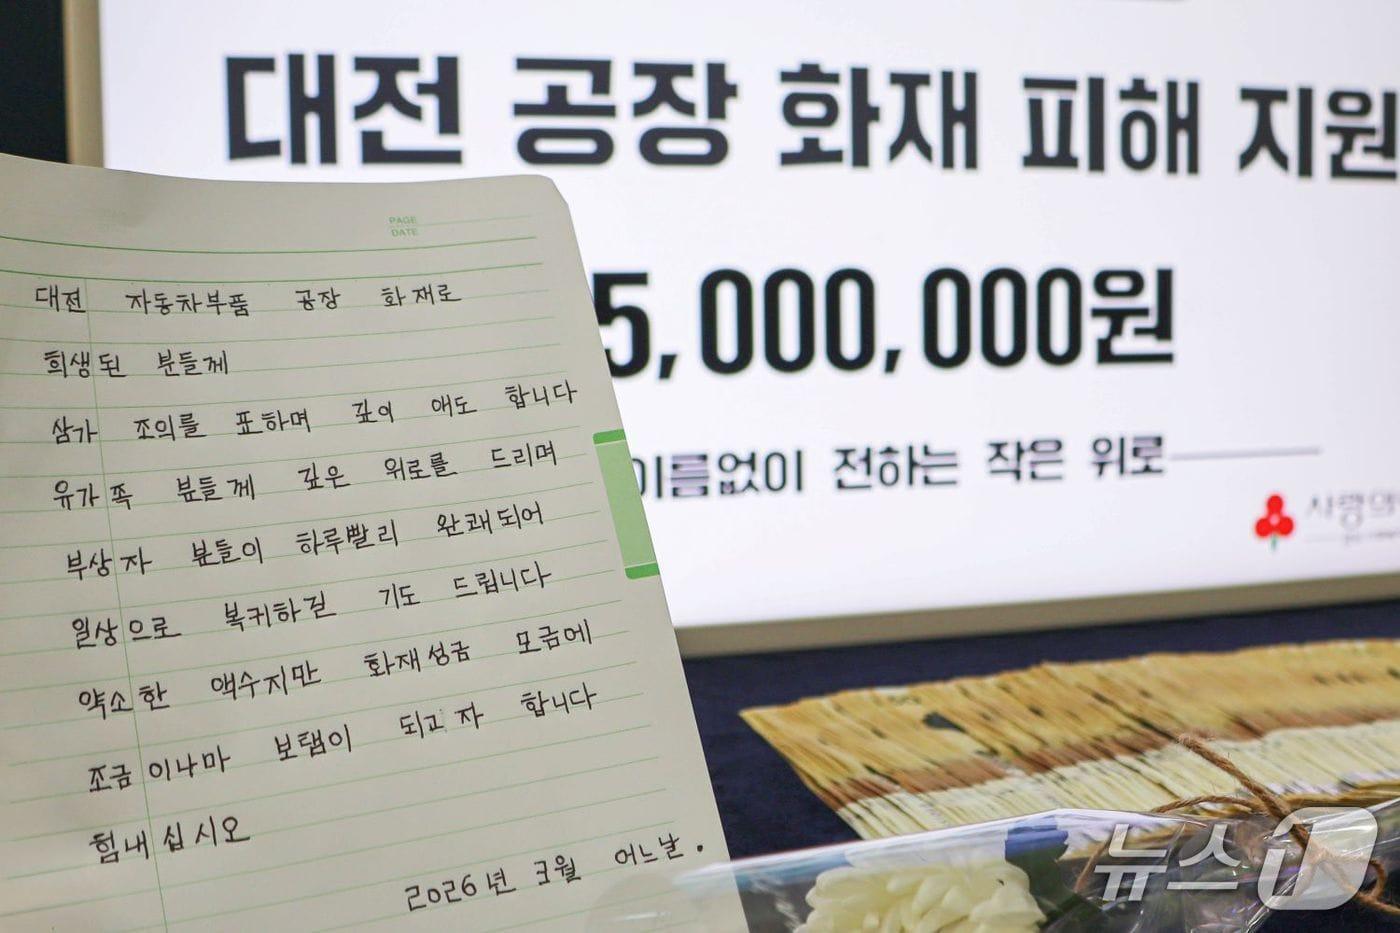 대전 공장 화재 피해 지원
5,000,000원
이름없이 전하는 작은 위로
사랑의
PAGE
DATE
대전 자동차부품 공장 화재로
희생된 분들께
삼가 조의를 표하며 깊이 애도 합니다
유가족 분들께 깊은 위로를 드리며
부상자 분들이 하루빨리 완쾌되어
일상으로 복귀하길 기도 드립니다
약소한 액수지만 화재성금 모금에
조금이나마 보탬이 되고자 합니다
힘내십시오
2026년 3월 어느날.
뉴스1